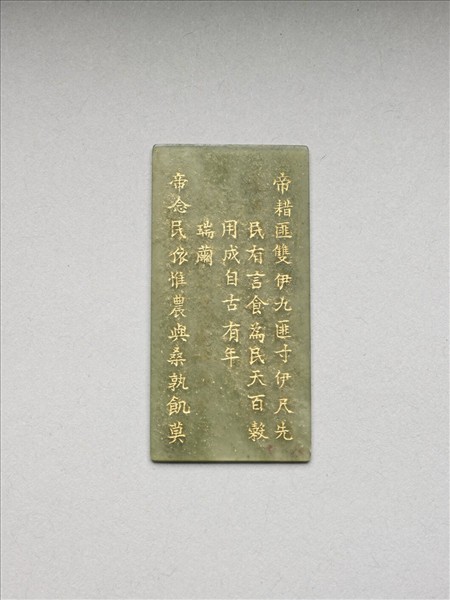 帝耤匪雙伊九匪寸伊尺先
民有言食爲民天百穀
用成自古有年
瑞繭
帝念民依惟農與桑孰飢莫